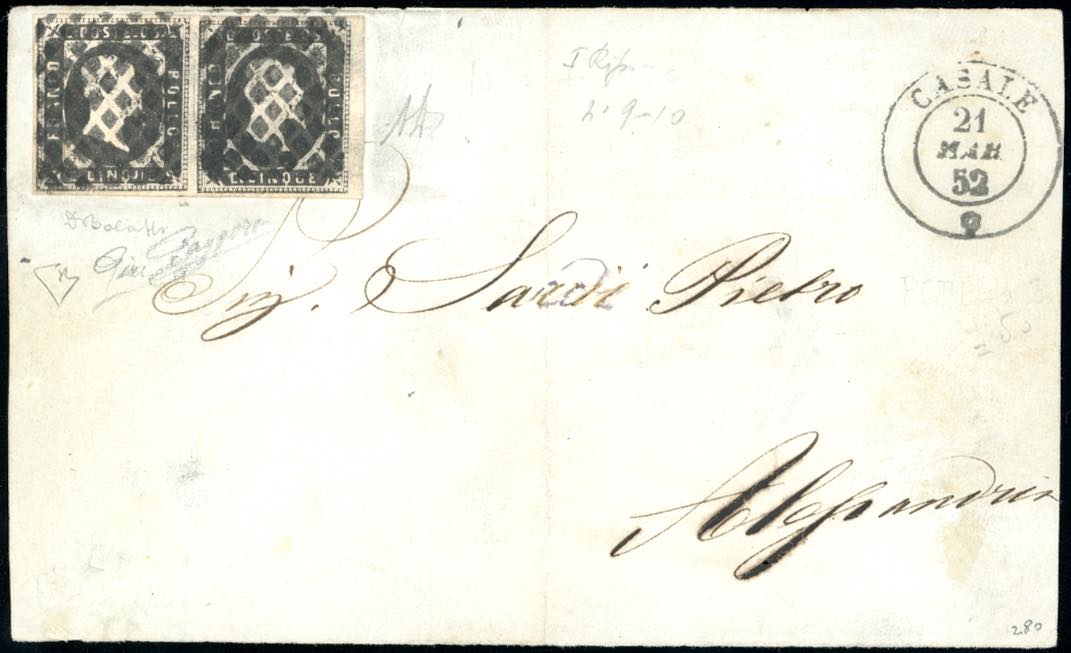 C. POSTE C. 5
FRANCO
BOLLO
C. CINQUE
C. POSTE C. 5
BOLLO
C. CINQUE
CASALE
21
MAR
52
9
I
n° 9-10
AD
Sig. Sardi Pietro
50
Alessandria
280